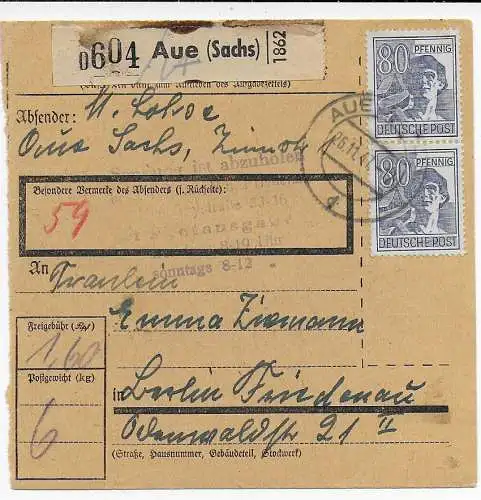 0604 Aue (Sachs) 1862
(Bitte zum Aufkleben des Aufgabezettels)
Absender: M. Lohse
Aue Sachs, Zinnstr 1
ist abzuholen
13-16
8-19 Uhr
sonntags 8-12
80 PFENNIG
DEUTSCHE POST
80 PFENNIG
DEUTSCHE POST
AUE
26.11.47
d
Besondere Vermerke des Absenders (s. Rückseite):
59
An Fräulein
Emma Ziemann
Freigebühr (RM)
1,60
Postgewicht (kg)
6
in Berlin Friedenau
Odenwaldstr 21 II
(Straße, Hausnummer, Gebäudeteil, Stockwerk)